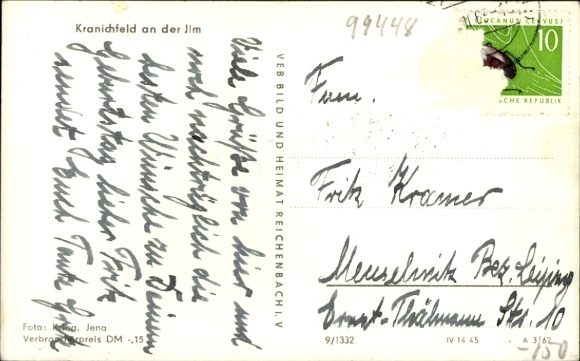 Kranichfeld an der Jlm
Viele Grüße von hier und
noch nachträglich die
besten Wünsche zu Deinem
Geburtstag lieber Fritz
sendet Euch Tante
VEB BILD UND HEIMAT REICHENBACH I. V
99448
LUCANUS CERVUS
10
SCHE REPUBLIK
Fam.
Fritz Kramer
Meuselwitz Bez. Leipzig
Ernst-Thälmann Str. 10
Foto: Krieg, Jena
Verbraucherpreis DM -,15
9/1332
IV-14-45
A 3/62
-150